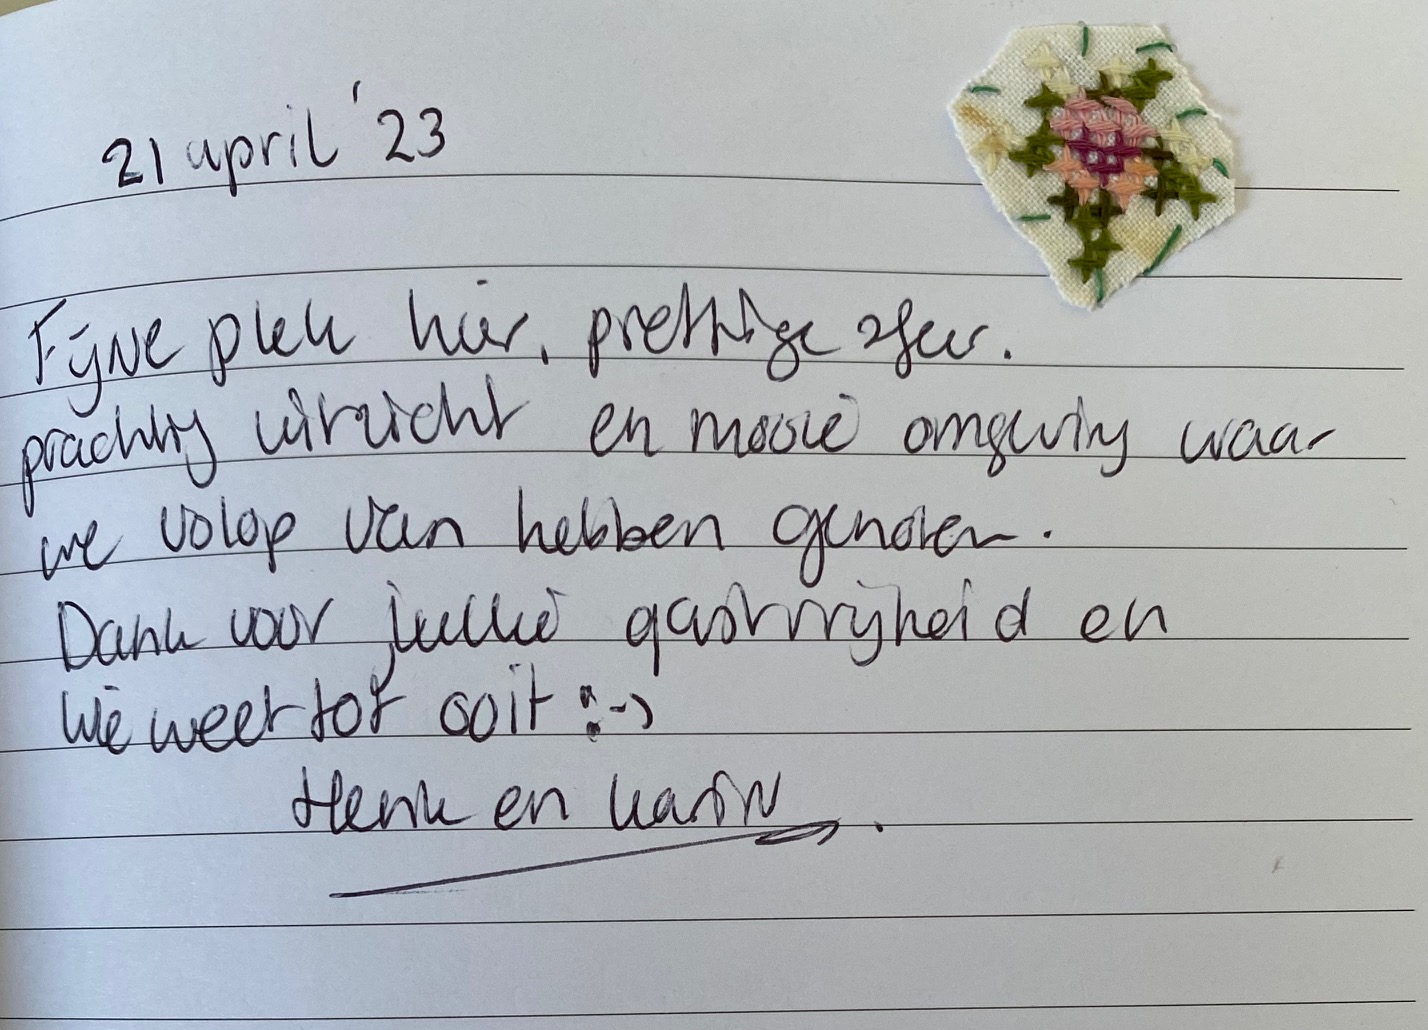 21 april '23
Fijne plek hier, prettige sfeer.
prachtig uitzicht en mooie omgeving waar
we volop van hebben genoten.
Dank voor jullie gastvrijheid en
wie weet tot ooit :-)
Henk en Karin.